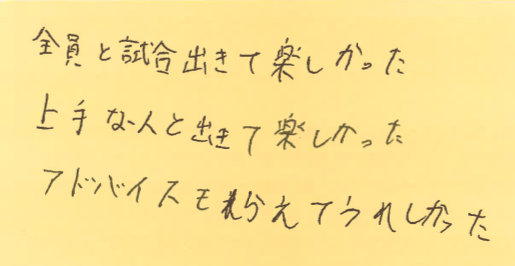 全員と試合出きて楽しかった
上手な人と出きて楽しかった
アドバイスも貰えてうれしかった